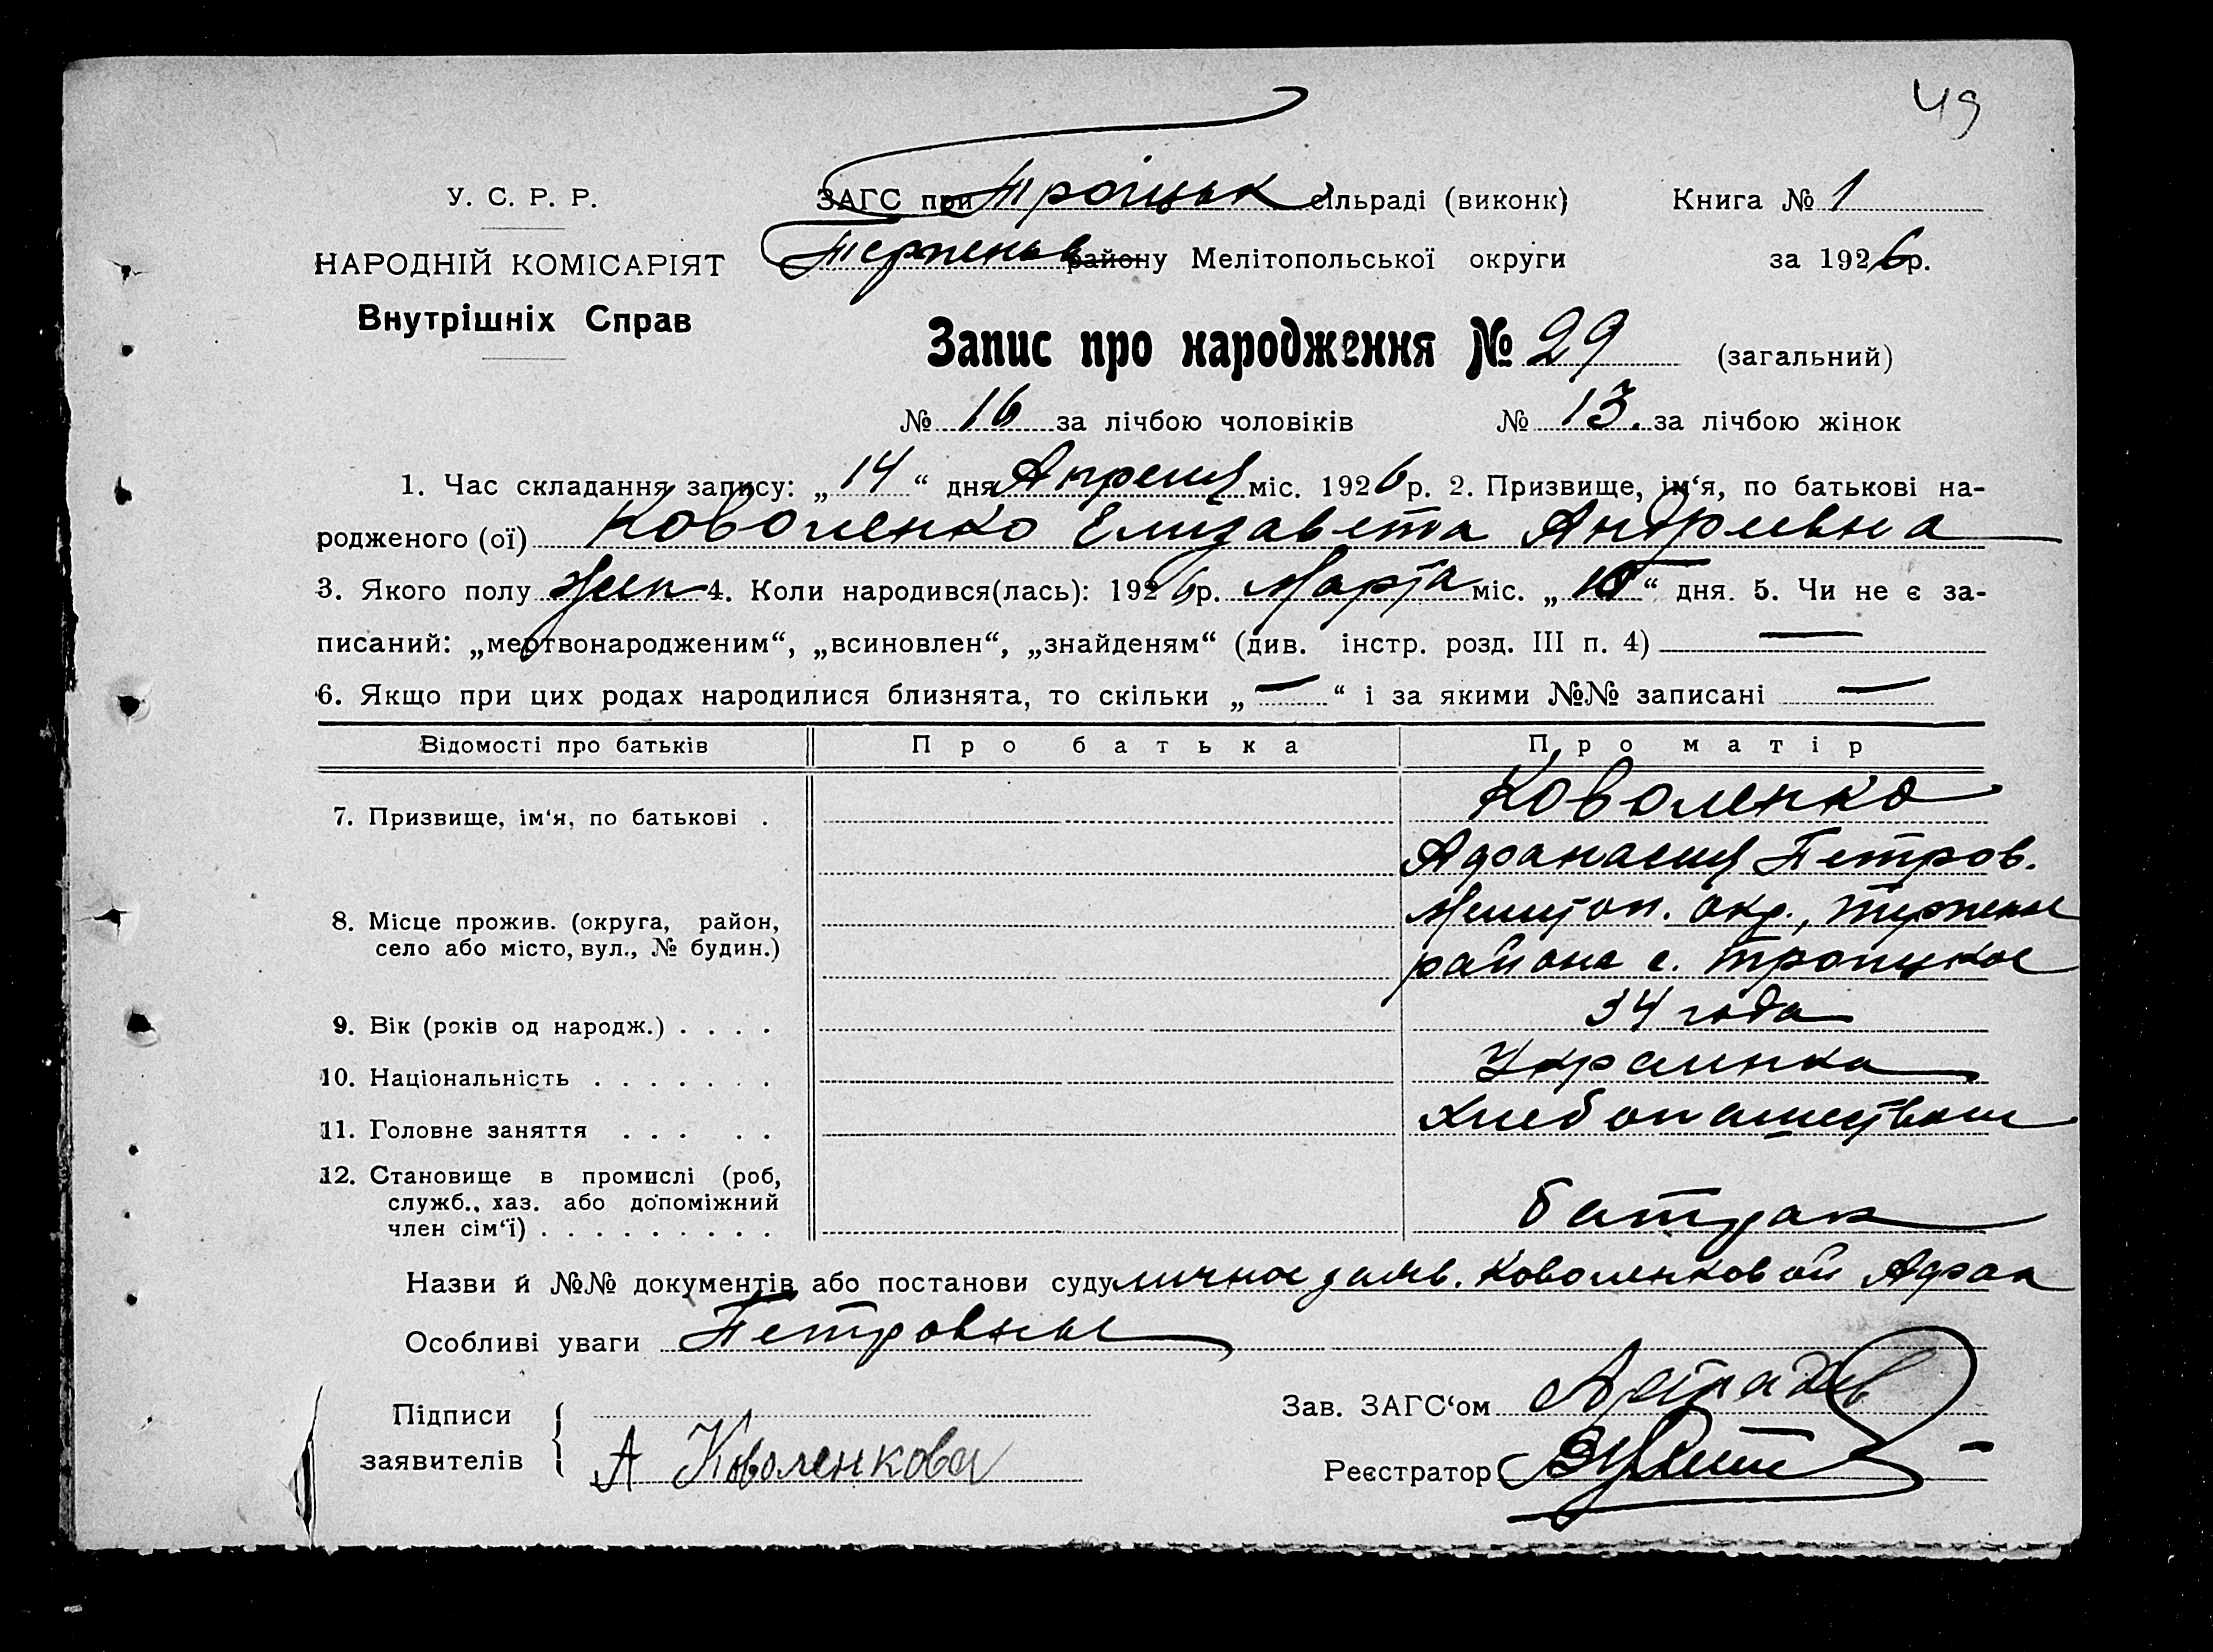 49
У. С. Р. Р.
ЗАГС при Троицьк сільраді (виконк) Книга № 1
НАРОДНІЙ КОМІСАРІЯТ
Терпеньев району Мелітопольської округи за 1926р.
Внутрішніх Справ
Запис про народження № 29 (загальний)
№ 16 за лічбою чоловіків № 13. за лічбою жінок
1. Час складання запису: „14“ дня Апреля міс. 1926р. 2. Призвище, ім‘я, по батькові на-
родженого (ої) Коволенко Елизавета Андреевна
3. Якого полу жен 4. Коли народився(лась): 1926р. Марта міс. „ “ дня. 5. Чи не є за-
писаний: „мертвонародженим“, „всиновлен“, „знайденям“ (див. інстр. розд. III п. 4) —
6. Якщо при цих родах народилися близнята, то скільки „—“ і за якими №№ записані —
Відомості про батьків Про батька Про матір
7. Призвище, ім‘я, по батькові . Коволенко
Афанасия Петров.
8. Місце прожив. (округа, район, Мелитоп. окр., Терпенье
село або місто, вул., № будин.) района с. Троицкое
9. Вік (років од народж.) . . . . 34 года
10. Національність . . . . . . . Украинка
11. Головне заняття . . . . . Хлебопашеством
12. Становище в промислі (роб,
служб., хаз. або допоміжний
член сім‘ї) . . . . . . . . . батрак
Назви й №№ документів або постанови суду личное заяв. Коволенковой Афан
Особливі уваги Петровны
Підписи Зав. ЗАГС‘ом
заявителів А Коволенкова
Реєстратор